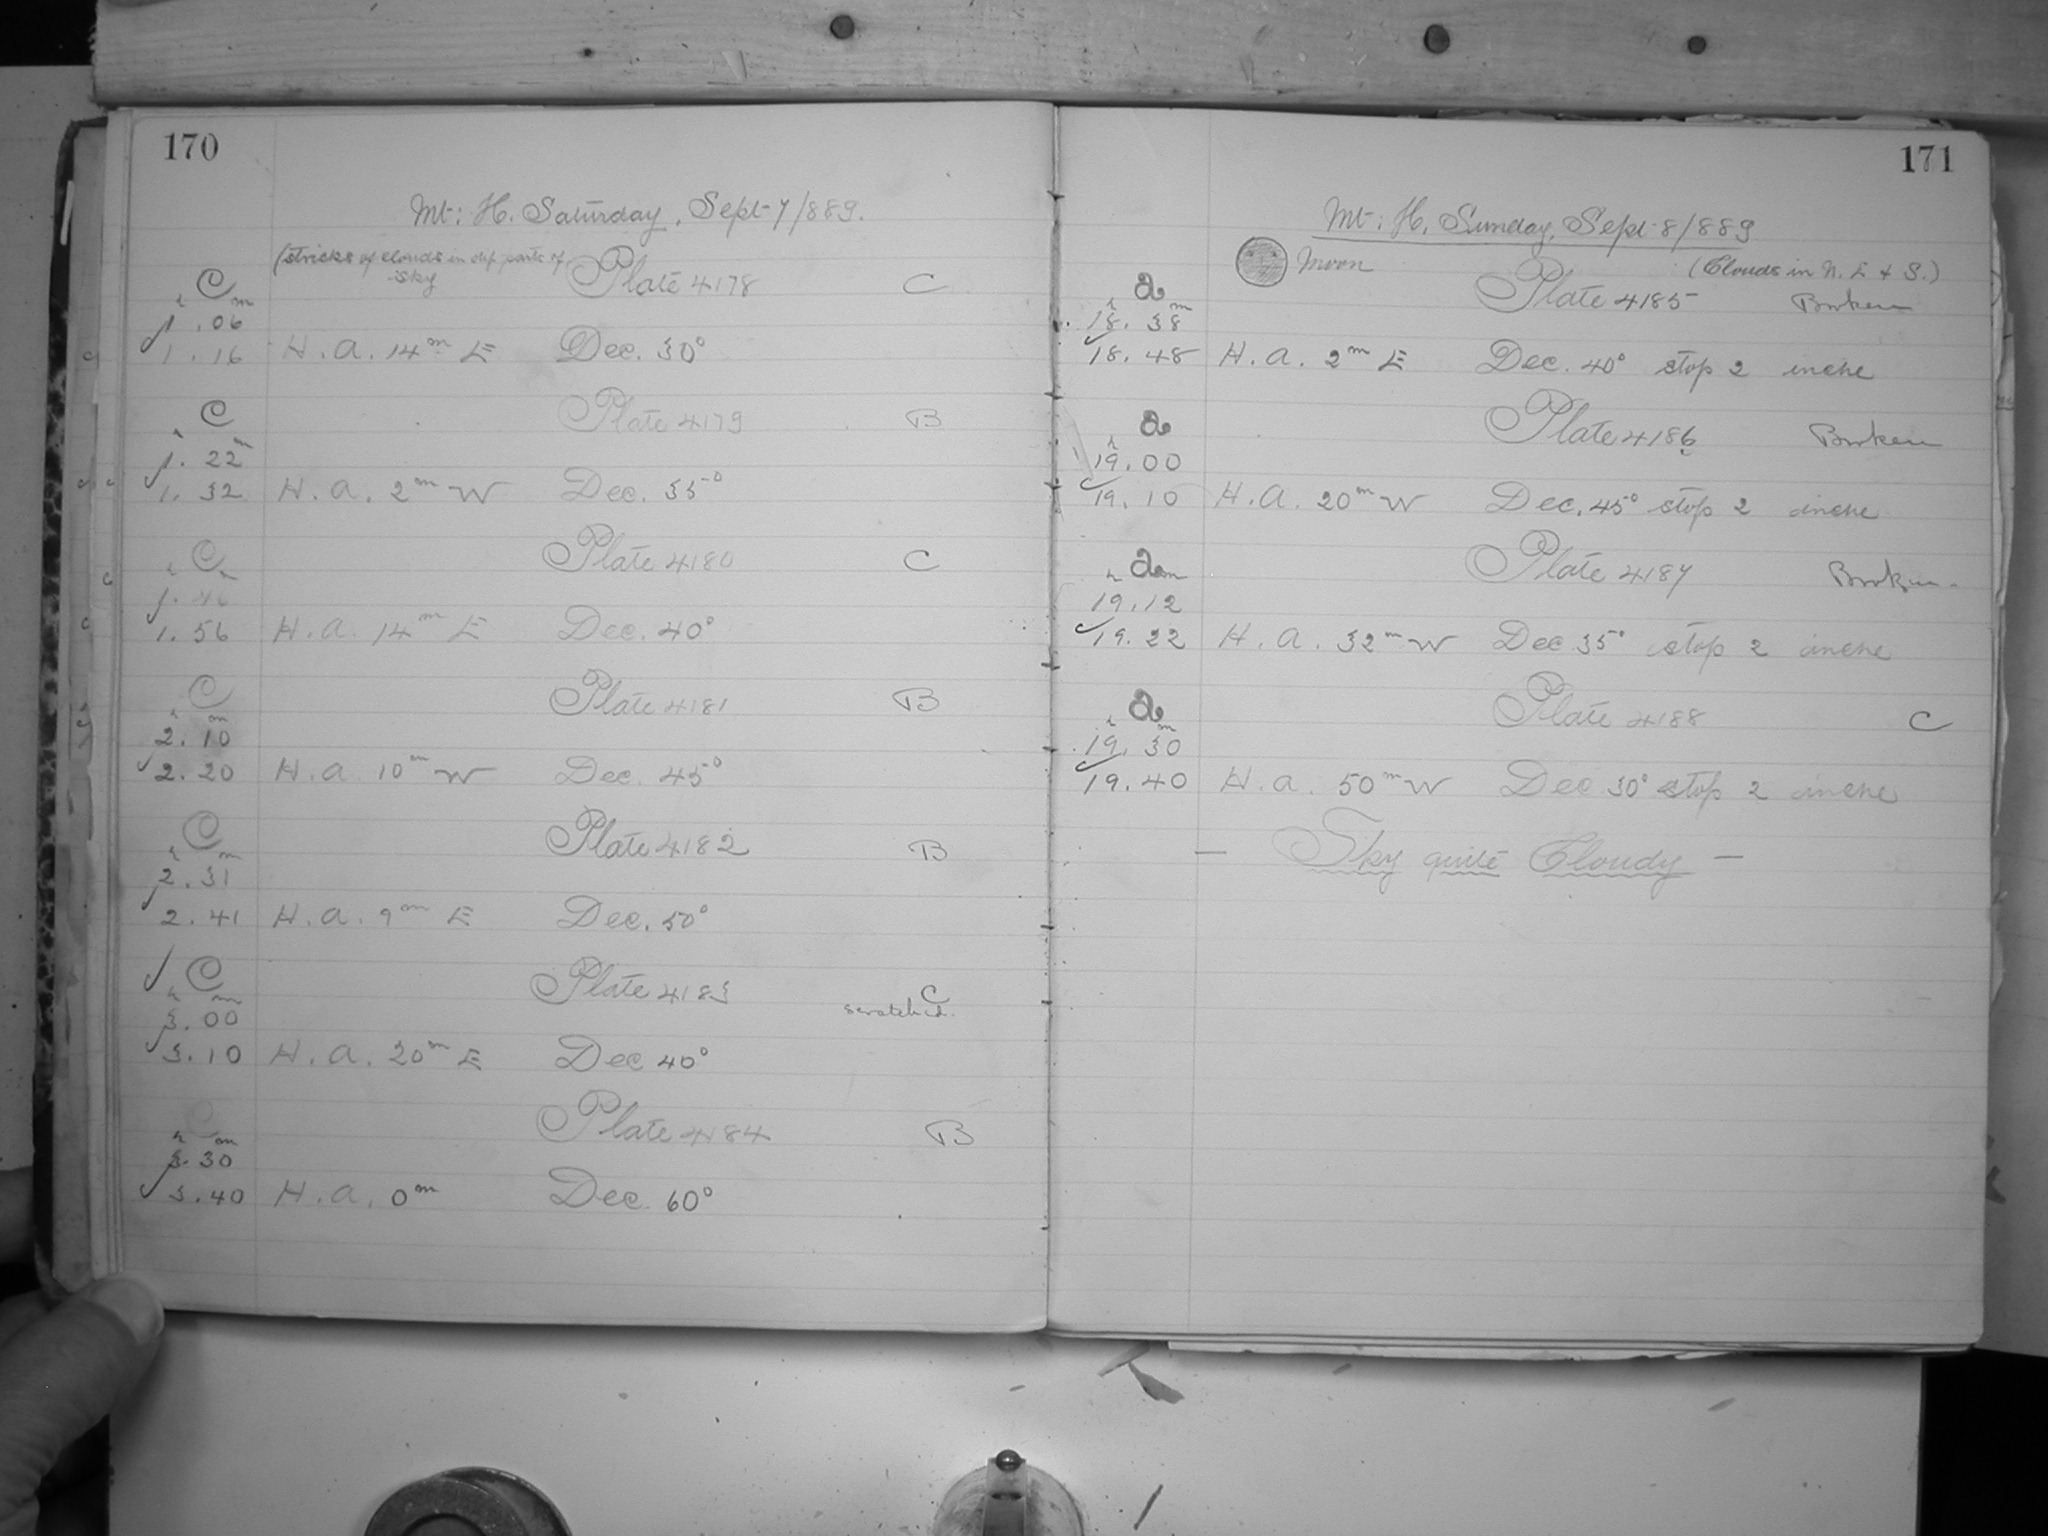 170
Mt: H. Saturday, Sept 7/889.
(stricks of clouds in dif. parts of
sky
C Plate 4178 C
h m
1.06
1.16 H.a. 14m E Dec. 30°
C Plate 4179 B
h m
1.22
1.32 H.a. 2m W Dec. 35°
C Plate 4180 C
h m
1.46
1.56 H.a. 14m E Dec. 40°
C Plate 4181 B
h m
2.10
2.20 H.a. 10m W Dec. 45°
C Plate 4182 B
h m
2.31
2.41 H.a. 9m E Dec. 50°
C Plate 4183 C
scratched.
h m
3.00
3.10 H.a. 20m E Dec 40°
C Plate 4184 B
h m
3.30
3.40 H.a. 0m Dec. 60°
171
Mt: H. Sunday, Sept 8/889
Moon (Clouds in N. E & S.)
a Plate 4185 Broken
h m
18.38
18.48 H.a. 2m E Dec. 40° stop 2 inche
a Plate 4186 Broken
h
19.00
19.10 H.a. 20m W Dec. 45° stop 2 inche
a Plate 4187 Broken
h m
19.12
19.22 H.a. 32m W Dec 35° stop 2 inche
a Plate 4188 C
h m
19.30
19.40 H.a. 50m W Dec 30° stop 2 inche
— Sky quite Cloudy —